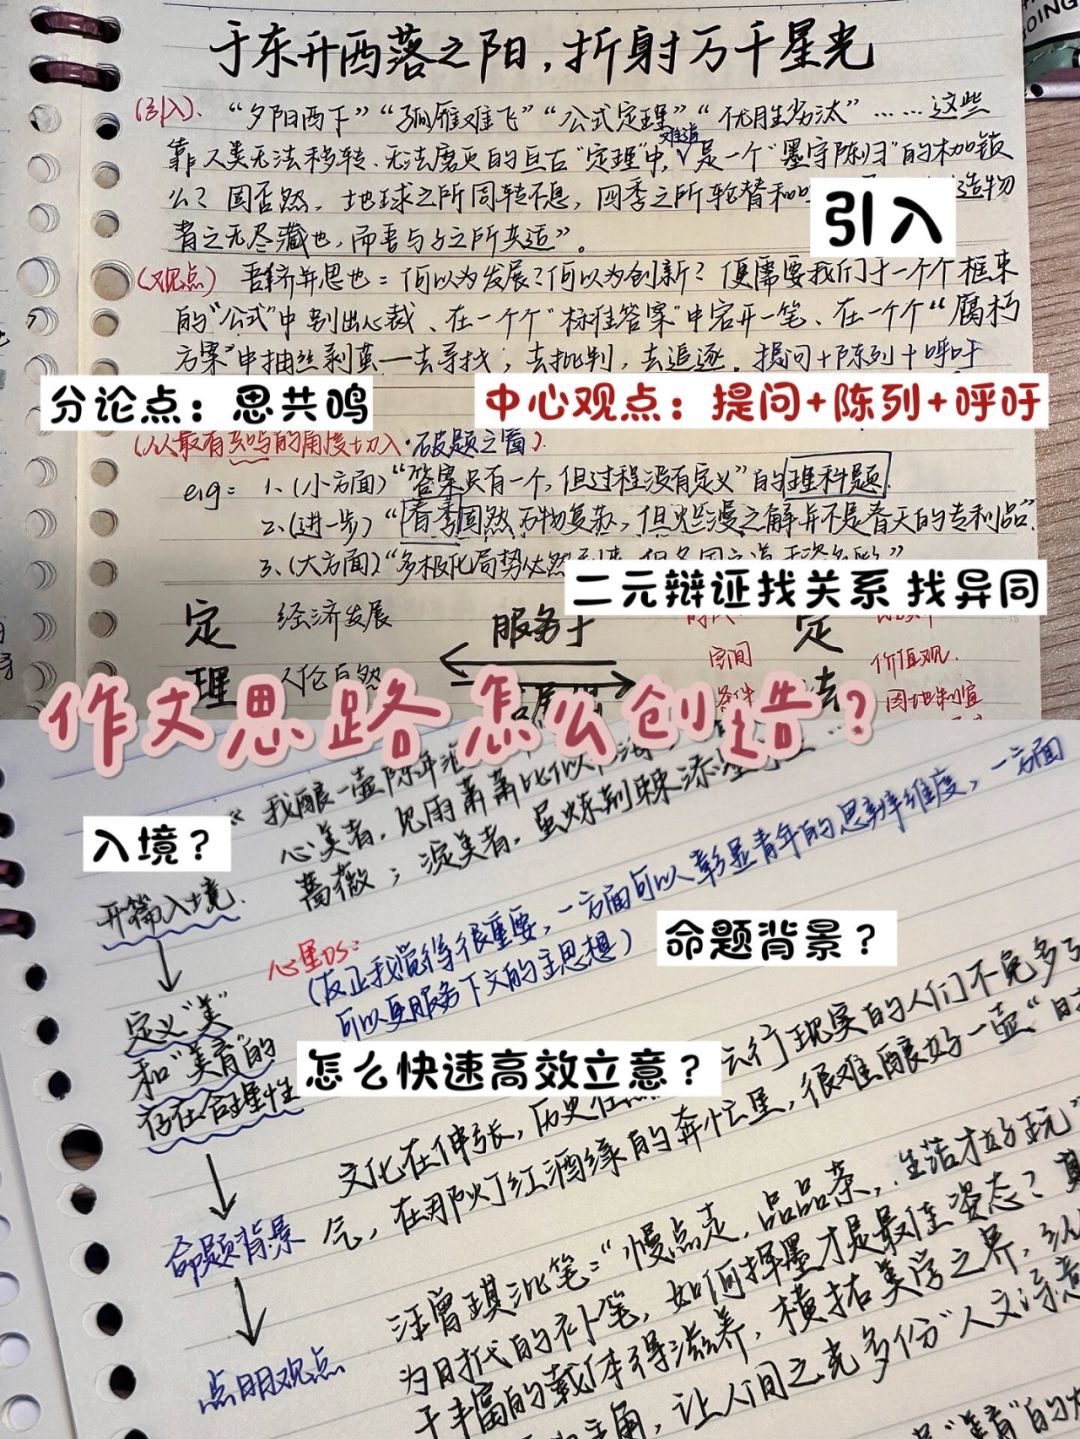 OING
于东升西落之阳，折射万千星光
(引入)、“夕阳西下”“孤雁难飞”“公式定理”“优胜劣汰”……这些
靠人类无法移转、无法磨灭的亘古“定理”中，难道是一个“墨守陈归”的枷锁
么？固否然，地球之所同转不息，四季之所轮替和 造物
者之无尽藏也，而吾与子之所共适”。
引入
(观点) 吾侪并思也：何以为发展？何以为创新？便需要我们于一个个框来
的“公式”中别出心裁、在一个个“标准答案”中宕开一笔、在一个个“腐朽
方案”中抽丝剥茧——去寻找，去批判，去追逐。提问+陈列+呼吁
分论点：思共鸣
中心观点：提问+陈列+呼吁
(从最有共鸣的角度切入·破题之窗)
eig= 1、(小方面)“答案只有一个，但过程没有定义”的理科题
2、(进一步)“春季固然万物复苏，但烂漫之解并不是春天的专利品”
3、(大方面)“多极化局势必然
二元辩证找关系 找异同
定理
经济发展
人伦自然
服务于
空间
条件
定法
价值观
因地制宜
作文思路 怎么创造？
“我酿一壶陈年
心美者，见雨萧萧比似
蔷薇；淀美者，虽炼荆棘添
入境？
开篇入境
心里DS：
(反正我觉得很重要，一方面可以彰显青年的思辨维度，一方面
可以更服务下文的主思想)
命题背景？
定义“美”
和“美育”的
存在合理性
怎么快速高效立意？
文化在伸张，历史在 云行现实的人们不免多了
气，在那灯红酒绿的奔忙里，很难酿好一壶“日
命题背景
汪曾祺沘笔：“慢点走，品品茶，生活才好玩”
为时代的补笔，如何挥墨才是最佳姿态？真
于丰富的载体得滋养，横拓美学之界，
点明观点
主角，让人间之美多份“人文
“美育”的